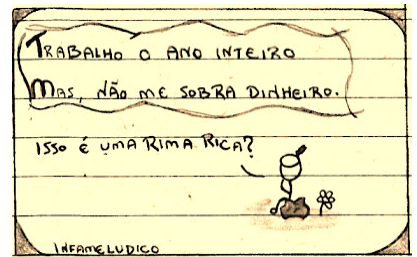 TRABALHO O ANO INTEIRO
MAS, NÃO ME SOBRA DINHEIRO.
ISSO É UMA RIMA RICA?
INFAMELUDICO